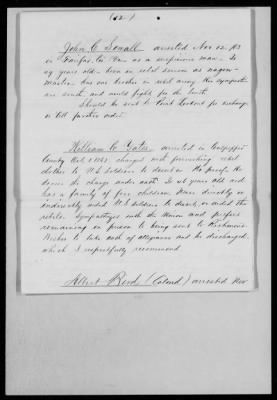 (12)
John C. Small arrested Nov 12, 63
in Fairfax Co Va as a suspicious man - Is
29 years old - been in rebel service as wagon-
master. Has one brother in rebel army. His sympathies
are south, and would fight for the South.
Should be sent to Point Lookout for exchange
or till further orders.
William C. Yates, arrested in Culpepper
County Oct. 1863. charged with furnishing rebel
clothes to U.S. Soldiers to desert in. No proof. He
denies the charge under oath. Is 28 years old and
has a family of five children. Never directly or
indirectly aided U.S. Soldiers to desert, or aided the
rebels. Sympathizes with the Union and prefers
remaining in prison to being sent to Richmond.
Wishes to take oath of allegiance and be discharged,
which I respectfully recommend.
Albert Reed, (Colored) arrested Nov